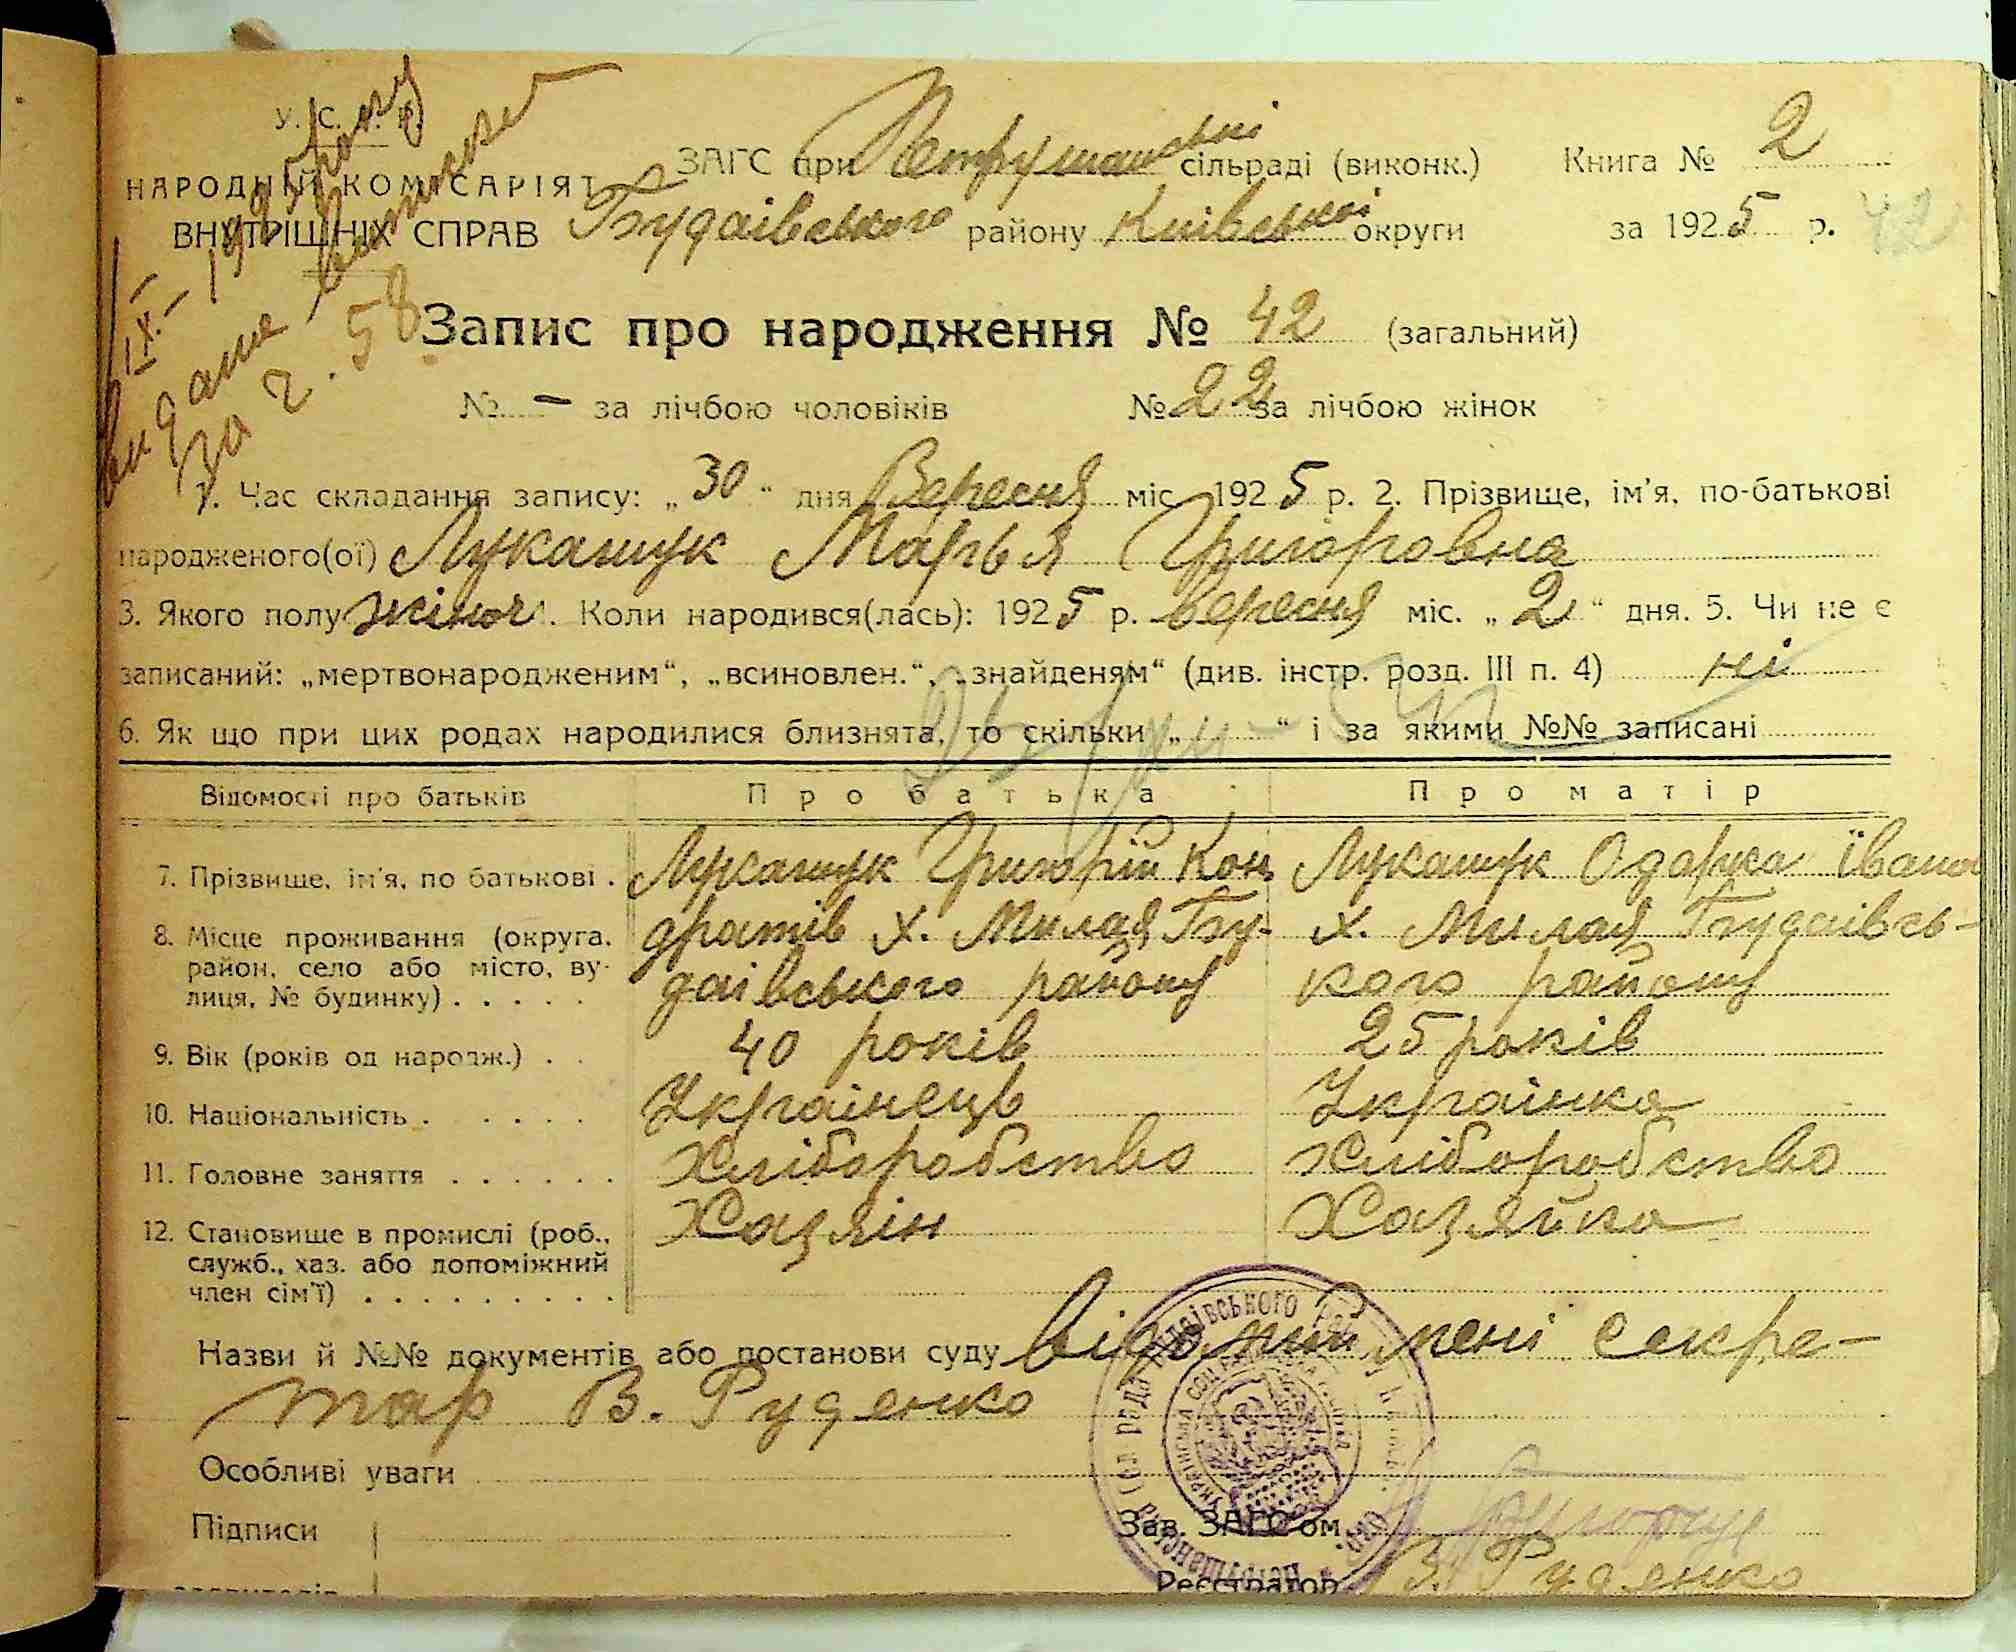 У. С. Р. Р.
НАРОДНІЙ КОМІСАРІЯТ
ВНУТРІШНІХ СПРАВ
ЗАГС при Петрушанській сільраді (виконк.) Книга № 2
Будаівського району Київської округи за 1925 р. 42
IX - 1925 року
видана виписка
за ч. 58
Запис про народження № 42 (загальний)
№ – за лічбою чоловіків № 22 за лічбою жінок
1. Час складання запису: „30“ дня Вересня міс. 1925 р. 2. Прізвище, ім'я, по-батькові
народженого(ої) Лукашук Марья Григоровна
3. Якого полу жіноч. Коли народився(лась): 1925 р. вересня міс. „2“ дня. 5. Чи не є
записаний: „мертвонародженим“, „всиновлен.“, „знайденям“ (див. інстр. розд. III п. 4) ні
6. Як що при цих родах народилися близнята, то скільки „ “ і за якими №№ записані
Відомості про батьків Про батька Про матір
7. Прізвище, ім'я, по батькові . Лукашук Григорій Кон Лукашук Одарка Івано
8. Місце проживання (округа, дратів х. Милая Бу- х. Милая Будаівсь-
район, село або місто, ву- даівського району кого району
лиця, № будинку) . . . . .
9. Вік (років од народж.) . . 40 років 25 років
10. Національність . . . . . . Украінець Украінка
11. Головне заняття . . . . . . Хліборобство Хліборобство
12. Становище в промислі (роб., Хазяін Хазяйка
служб., хаз. або допоміжний
член сім'ї) . . . . . . . . .
Назви й №№ документів або постанови суду відомий мені секре-
тар В. Руденко
Особливі уваги
Підписи
Зав. ЗАГС'ом
Реєстратор В. Руденко